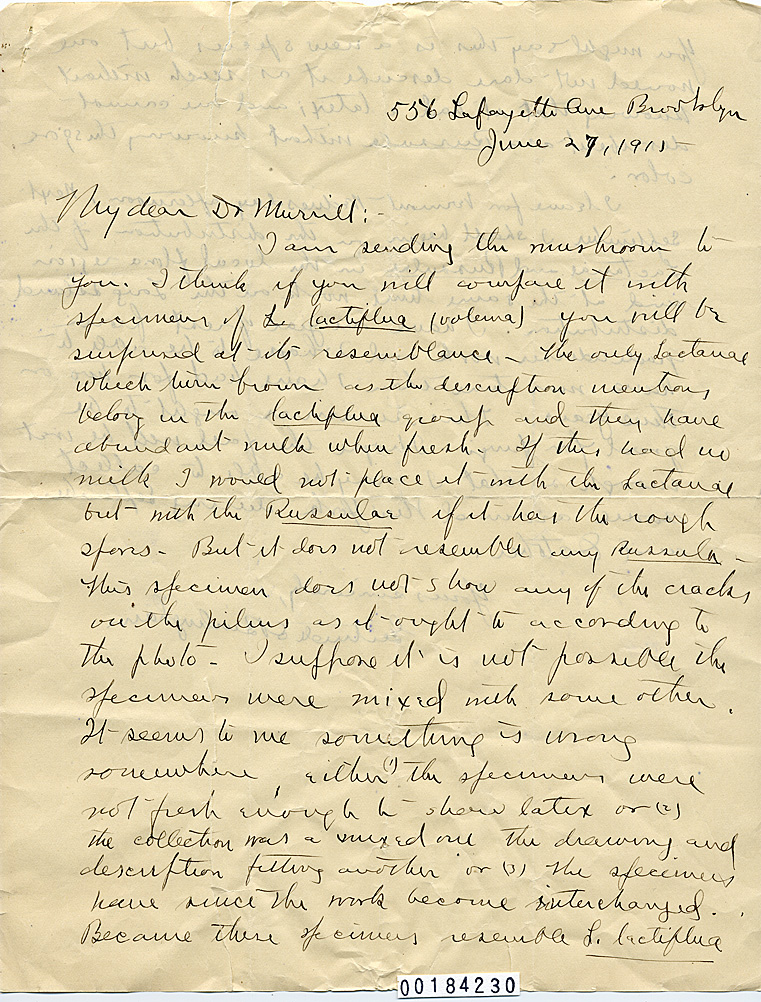 556 Lafayette Ave Brooklyn
June 27, 1915
My dear Dr Murrill:-
I am sending the mushroom to
you. I think if you will compare it with
specimens of L. lactiflua (volema) you will be
surprised at its resemblance - The only Lactariae
which turn brown as the description mentions
belong in the lactiflua group and they have
abundant milk when fresh. If this had no
milk I would not place it with the Lactariae
but with the Russulae if it has the rough
spores - But it does not resemble any Russula -
This specimen does not show any of the cracks
on the pileus as it ought to according to
the photo - I suppose it is not possible the
specimens were mixed with some other.
It seems to me something is wrong
somewhere, either (1) the specimens were
not fresh enough to show latex or (2)
the collection was a mixed one the drawing and
description fitting another or (3) the specimens
have since the work become interchanged.
Because these specimens resemble L. lactiflua
00184230